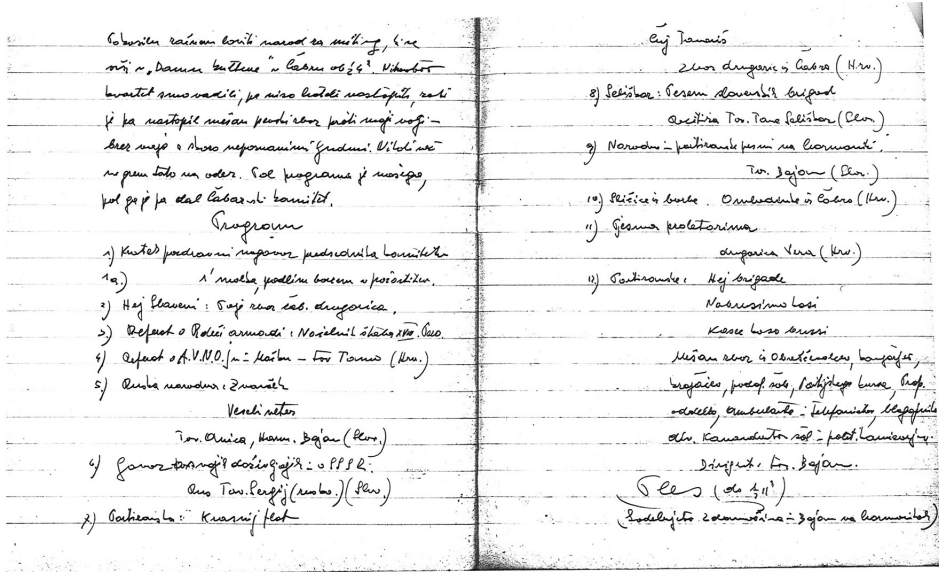 začnem loviti narod za miting, ki se
vrši v „Domu kulture“ v Čabru ob ½4ʰ.
kvartet smo vadili, pa niso hoteli nastopiti, zato
je pa nastopil mešan pevski zbor proti moji volji –
brez vaje s skoro nepoznanimi ljudmi. Nikoli več
ne grem tako na oder. Pol programa je našega,
pol ga je pa dal Čabarski komitet.
Program
1) Kratek pozdravni nagovor predsednika komiteta
1a.) 1' molka, padlim borcem v počastitev.
2) Hej Slaveni: Poje zbor čab. drugarica.
3) Referat o Rdeči armadi: Načelnik štaba XVIII.
4) Referat o A.V.N.O.J-u – tov. Tomo (Hrv.)
5) Ruska narodna:
Veseli veter
Tov. Anica, Harm. Bojan (Slov.)
6) Govor o svojih doživljajih – v SSSR.
Rus Tov. Sergij (rusko.) (Slov.)
7) Partizanska: Krasnij flot
Čuj Tomaž
Zbor drugarica iz Čabra (Hrv.)
8) Seliškar: Pesem slovenskih brigad
Recitira Tov. Tone Seliškar (Slov.)
9) Narodne – partizanske pesmi na harmoniki.
Tov. Bojan (Slov.)
10) Sličice iz borbe. Omladinke iz Čabra (Hrv.)
11) Pjesma proletarima
drugarica Vera (Hrv.)
12) Partizanske: Hej brigade
Nabrusimo kosi
Kosec koso brusi
Mešan zbor iz
podof. šole, Partijskega kursa, Prop.
odseka, ambulante – telefonistov,
Dirigent: tov. Bojan.
Ples (do ½11ʰ)
(Bojan na harmonikah)